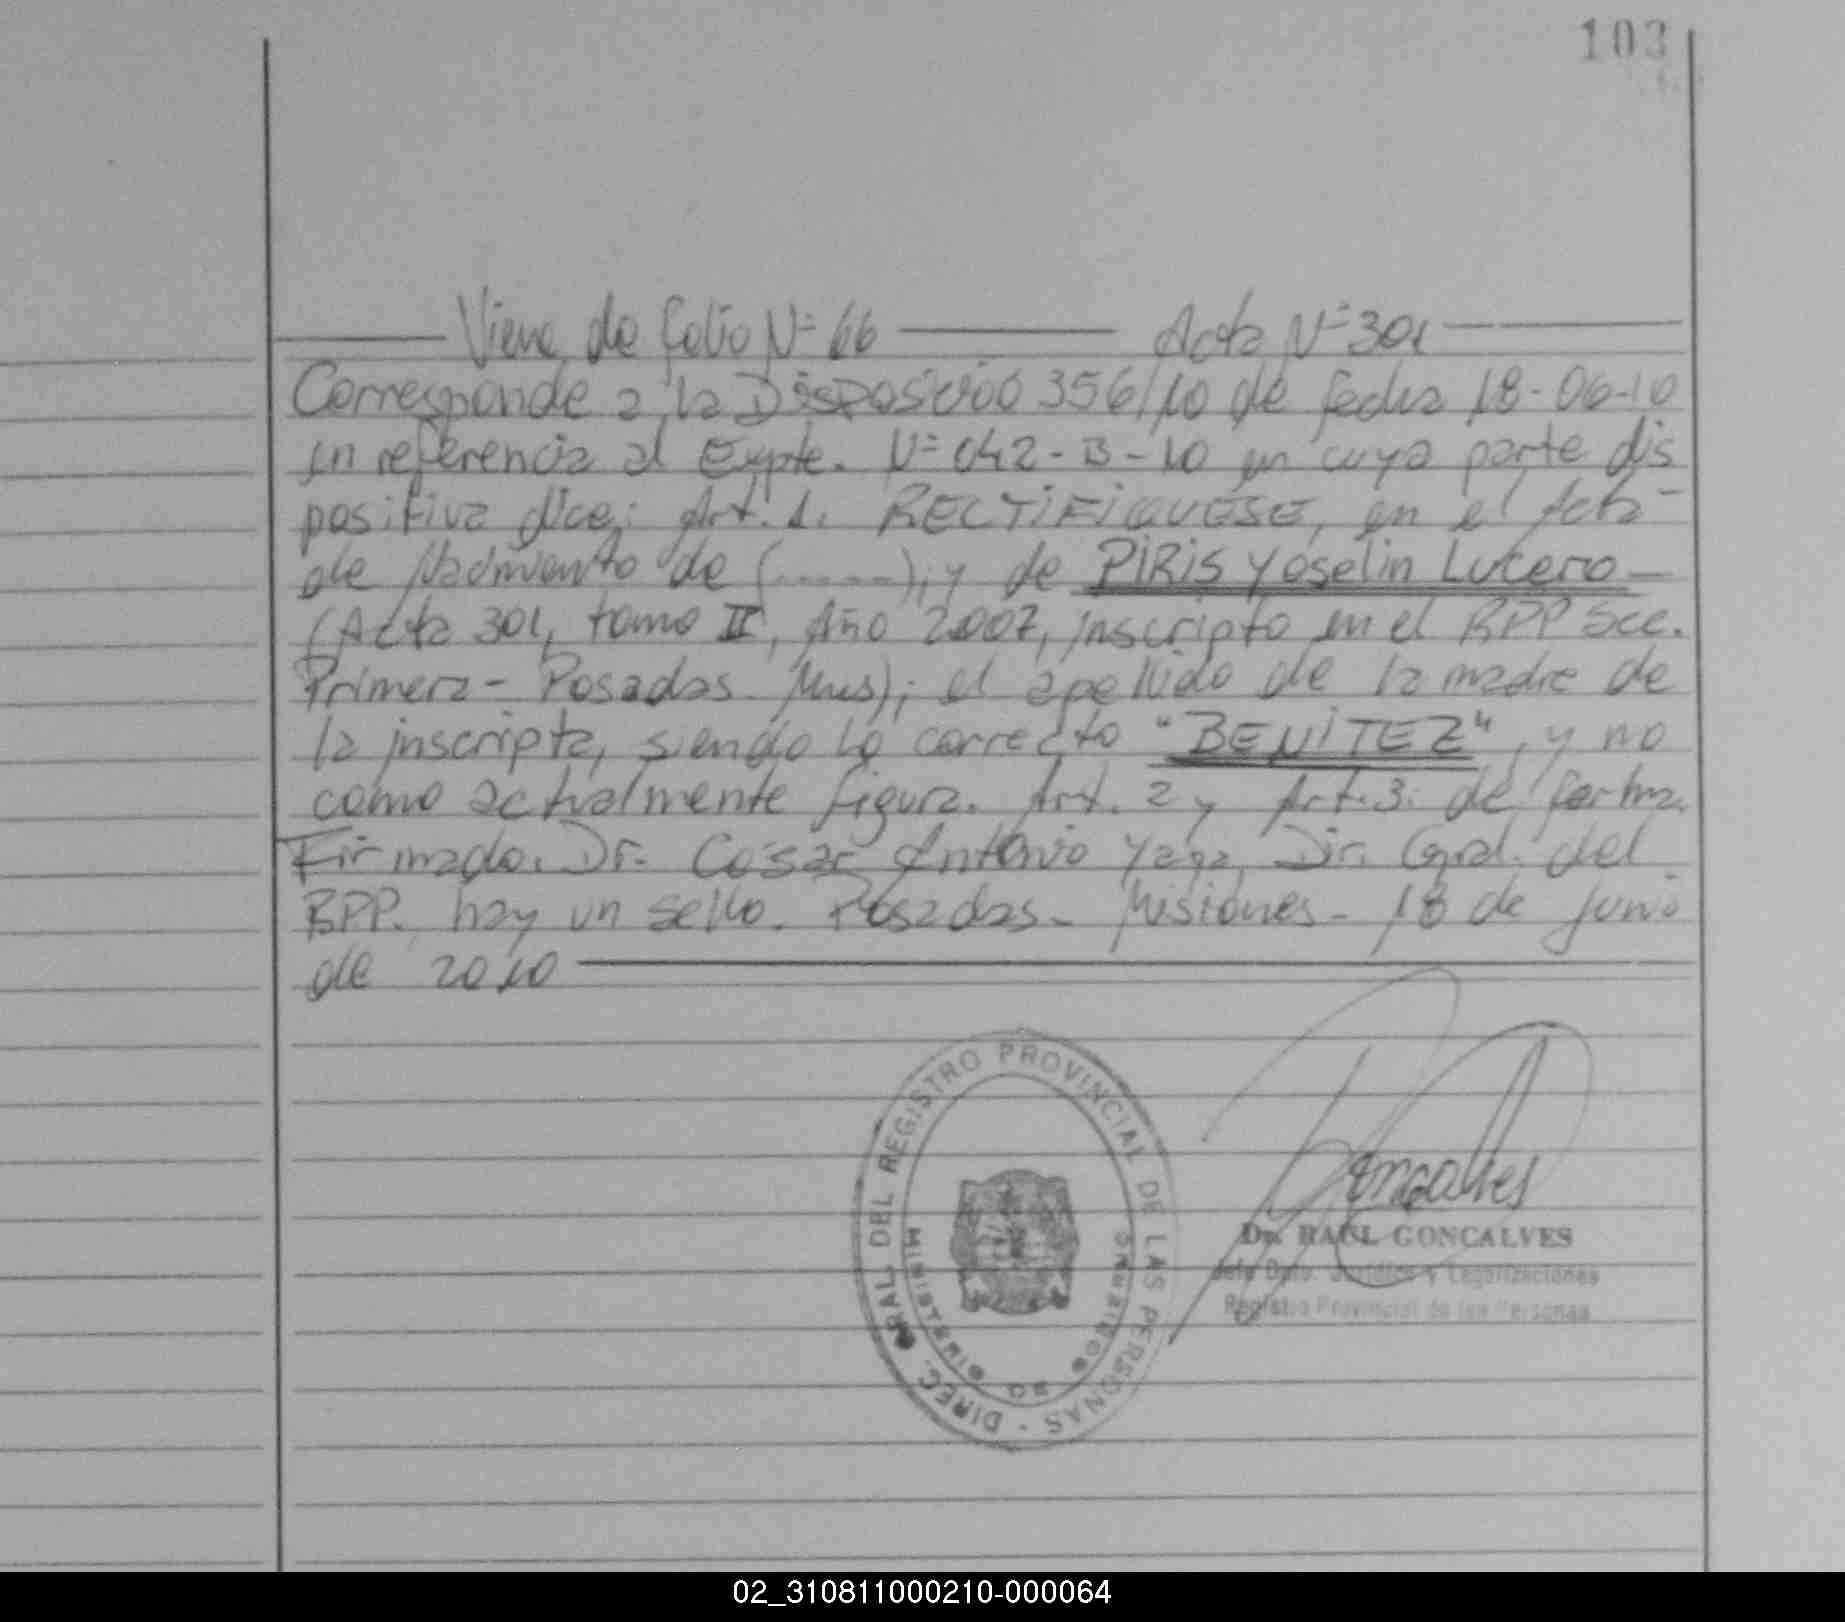 103
Viene de folio Nº 66 Acta Nº 301
Corresponde a la Disposición 356/10 de fecha 18-06-10
en referencia al Expte. Nº 042-B-10 en cuya parte dis
positiva dice: Art. 1. RECTIFIQUESE, en el Acta
de Nacimiento de (......), y de PIRIS Yoselin Lucero
(Acta 301, tomo II, Año 2007, inscripto en el RPP Scc.
Primera - Posadas Mnes); el apellido de la madre de
la inscripta, siendo lo correcto "BENITEZ", y no
como actualmente figura. Art. 2 y Art. 3. de forma.
Firmado. Dr. Cesar Antonio Yaya, Dir. Gral. del
RPP. hay un sello. Posadas - Misiones - 18 de junio
de 2010
DIREC. GRAL DEL REGISTRO PROVINCIAL DE LAS PERSONAS -
MINISTERIO DE GOBIERNO
Goncalves
Dr. RAUL GONCALVES
Jefe Dpto. Jurídico y Legalizaciones
Registro Provincial de las Personas
02_310811000210-000064